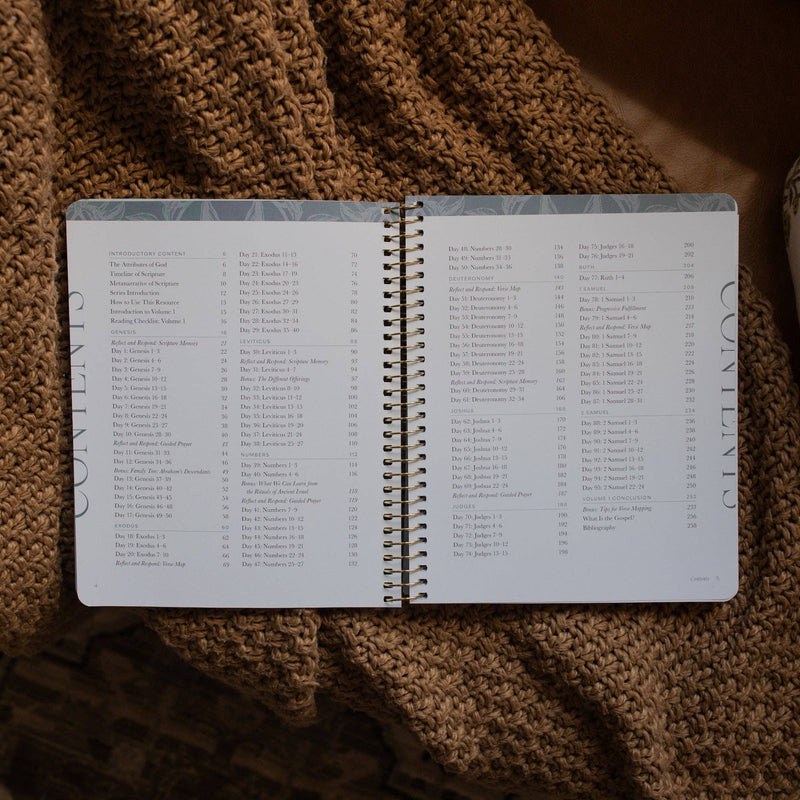 CONTENTS
INTRODUCTORY CONTENT 6
The Attributes of God 6
Timeline of Scripture 8
Metanarrative of Scripture 10
Series Introduction 12
How to Use This Resource 13
Introduction to Volume 1 15
Reading Checklist: Volume 1 16
GENESIS 18
Reflect and Respond: Scripture Memory 21
Day 1: Genesis 1–3 22
Day 2: Genesis 4–6 24
Day 3: Genesis 7–9 26
Day 4: Genesis 10–12 28
Day 5: Genesis 13–15 30
Day 6: Genesis 16–18 32
Day 7: Genesis 19–21 34
Day 8: Genesis 22–24 36
Day 9: Genesis 25–27 38
Day 10: Genesis 28–30 40
Reflect and Respond: Guided Prayer
Day 11: Genesis 31–33 44
Day 12: Genesis 34–36 46
Bonus: Family Tree: Abraham's Descendants 49
Day 13: Genesis 37–39 50
Day 14: Genesis 40–42 52
Day 15: Genesis 43–45 54
Day 16: Genesis 46–48 56
Day 17: Genesis 49–50 58
EXODUS 60
Day 18: Exodus 1–3 62
Day 19: Exodus 4–6 64
Day 20: Exodus 7–10 66
Reflect and Respond: Verse Map 69
4
Day 21: Exodus 11–13 70
Day 22: Exodus 14–16 72
Day 23: Exodus 17–19 74
Day 24: Exodus 20–23 76
Day 25: Exodus 24–26 78
Day 26: Exodus 27–29 80
Day 27: Exodus 30–31 82
Day 28: Exodus 32–34 84
Day 29: Exodus 35–40 86
LEVITICUS 88
Day 30: Leviticus 1–3 90
Reflect and Respond: Scripture Memory 93
Day 31: Leviticus 4–7 94
Bonus: The Different Offerings 97
Day 32: Leviticus 8–10 98
Day 33: Leviticus 11–12 100
Day 34: Leviticus 13–15 102
Day 35: Leviticus 16–18 104
Day 36: Leviticus 19–20 106
Day 37: Leviticus 21–24 108
Day 38: Leviticus 25–27 110
NUMBERS 112
Day 39: Numbers 1–3 114
Day 40: Numbers 4–6 116
Bonus: What We Can Learn from
the Rituals of Ancient Israel 118
Reflect and Respond: Guided Prayer 119
Day 41: Numbers 7–9 120
Day 42: Numbers 10–12 122
Day 43: Numbers 13–15 124
Day 44: Numbers 16–18 126
Day 45: Numbers 19–21 128
Day 46: Numbers 22–24 130
Day 47: Numbers 25–27 132
Day 48: Numbers 28–30 134
Day 49: Numbers 31–33 136
Day 50: Numbers 34–36 138
DEUTERONOMY 140
Reflect and Respond: Verse Map 143
Day 51: Deuteronomy 1–3 144
Day 52: Deuteronomy 4–6 146
Day 53: Deuteronomy 7–9 148
Day 54: Deuteronomy 10–12 150
Day 55: Deuteronomy 13–15 152
Day 56: Deuteronomy 16–18 154
Day 57: Deuteronomy 19–21 156
Day 58: Deuteronomy 22–24 158
Day 59: Deuteronomy 25–28 160
Reflect and Respond: Scripture Memory 163
Day 60: Deuteronomy 29–31 164
Day 61: Deuteronomy 32–34 166
JOSHUA 168
Day 62: Joshua 1–3 170
Day 63: Joshua 4–6 172
Day 64: Joshua 7–9 174
Day 65: Joshua 10–12 176
Day 66: Joshua 13–15 178
Day 67: Joshua 16–18 180
Day 68: Joshua 19–21 182
Day 69: Joshua 22–24 184
Reflect and Respond: Guided Prayer 187
JUDGES 188
Day 70: Judges 1–3 190
Day 71: Judges 4–6 192
Day 72: Judges 7–9 194
Day 73: Judges 10–12 196
Day 74: Judges 13–15 198
Day 75: Judges 16–18 200
Day 76: Judges 19–21 202
RUTH 204
Day 77: Ruth 1–4 206
1 SAMUEL 208
Day 78: 1 Samuel 1–3 210
Bonus: Progressive Fulfillment 213
Day 79: 1 Samuel 4–6 214
Reflect and Respond: Verse Map 217
Day 80: 1 Samuel 7–9 218
Day 81: 1 Samuel 10–12 220
Day 82: 1 Samuel 13–15 222
Day 83: 1 Samuel 16–18 224
Day 84: 1 Samuel 19–21 226
Day 85: 1 Samuel 22–24 228
Day 86: 1 Samuel 25–27 230
Day 87: 1 Samuel 28–31 232
2 SAMUEL 234
Day 88: 2 Samuel 1–3 236
Day 89: 2 Samuel 4–6 238
Day 90: 2 Samuel 7–9 240
Day 91: 2 Samuel 10–12 242
Day 92: 2 Samuel 13–15 244
Day 93: 2 Samuel 16–18 246
Day 94: 2 Samuel 19–21 248
Day 95: 2 Samuel 22–24 250
VOLUME 1 CONCLUSION 252
Bonus: Tips for Verse Mapping 253
What Is the Gospel? 256
Bibliography 258
Contents 5
CONTENTS